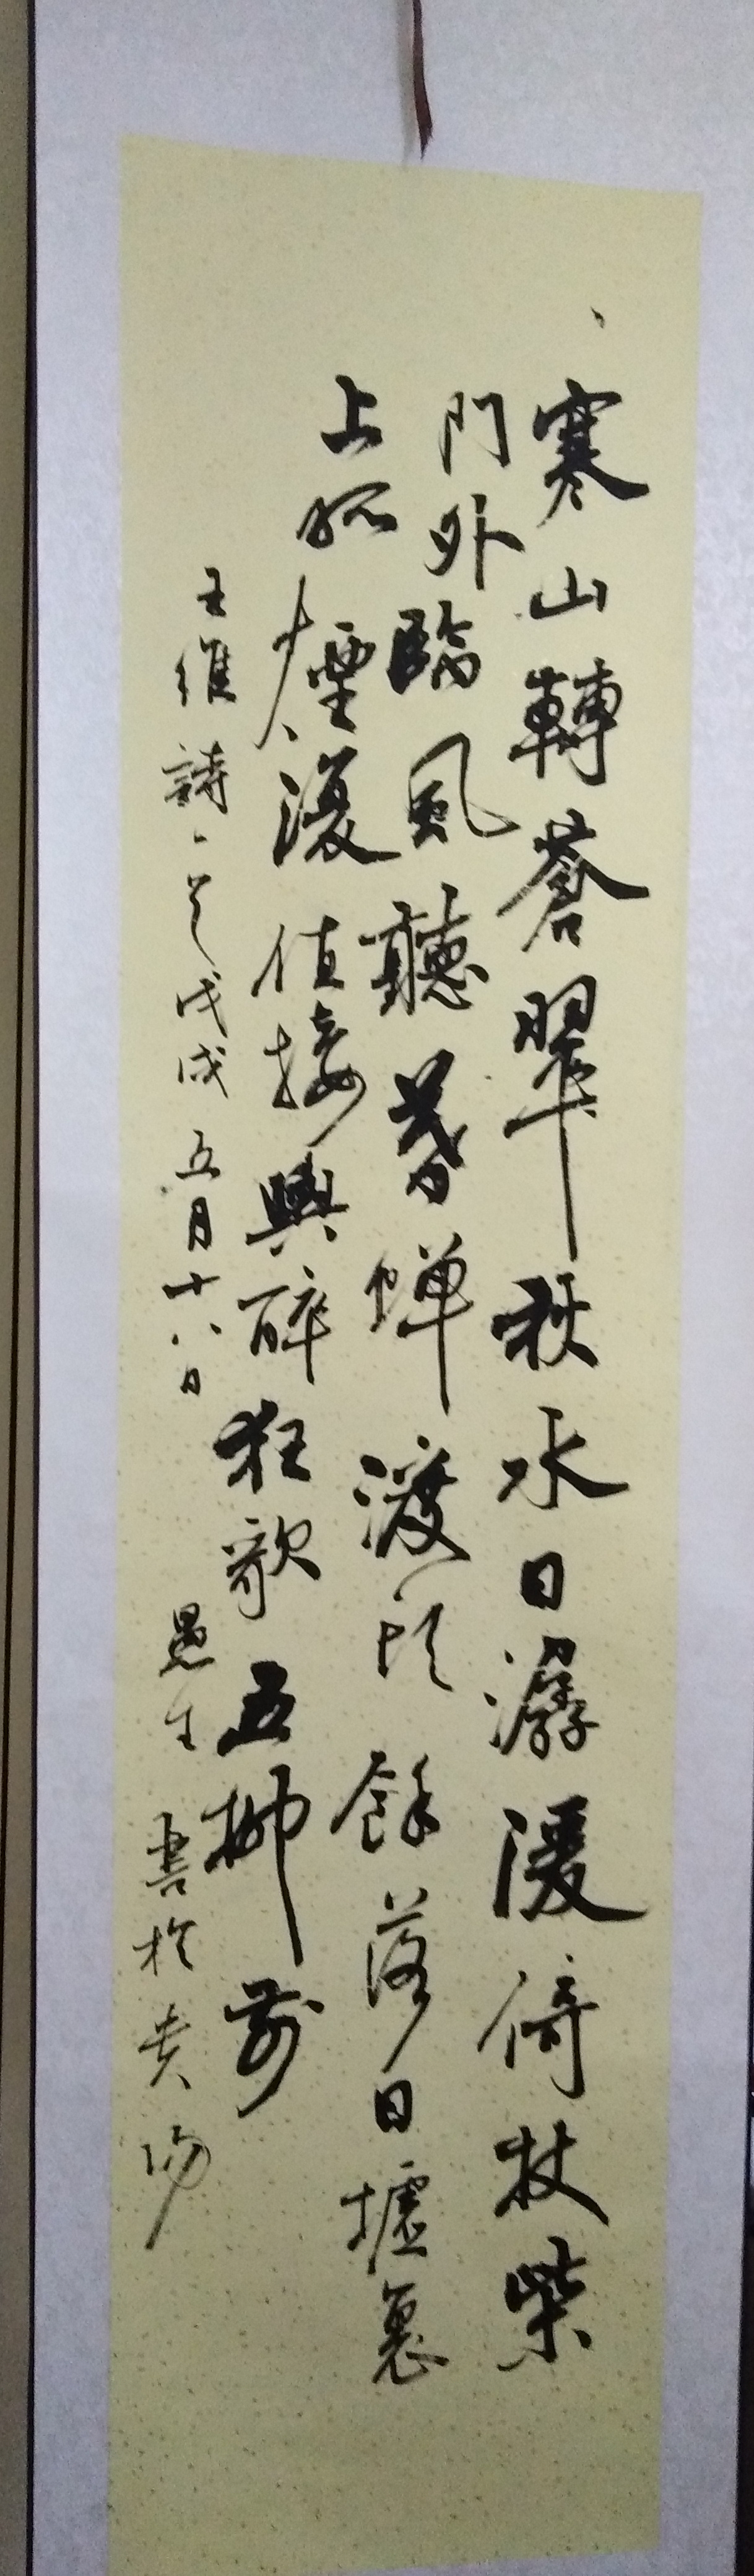 寒山轉蒼翠秋水日潺湲倚杖柴
門外臨風聽暮蟬渡頭餘落日墟裏
上孤煙復值接輿醉狂歌五柳前
王維詩一首戊戌五月十八日愚生書於贵陽